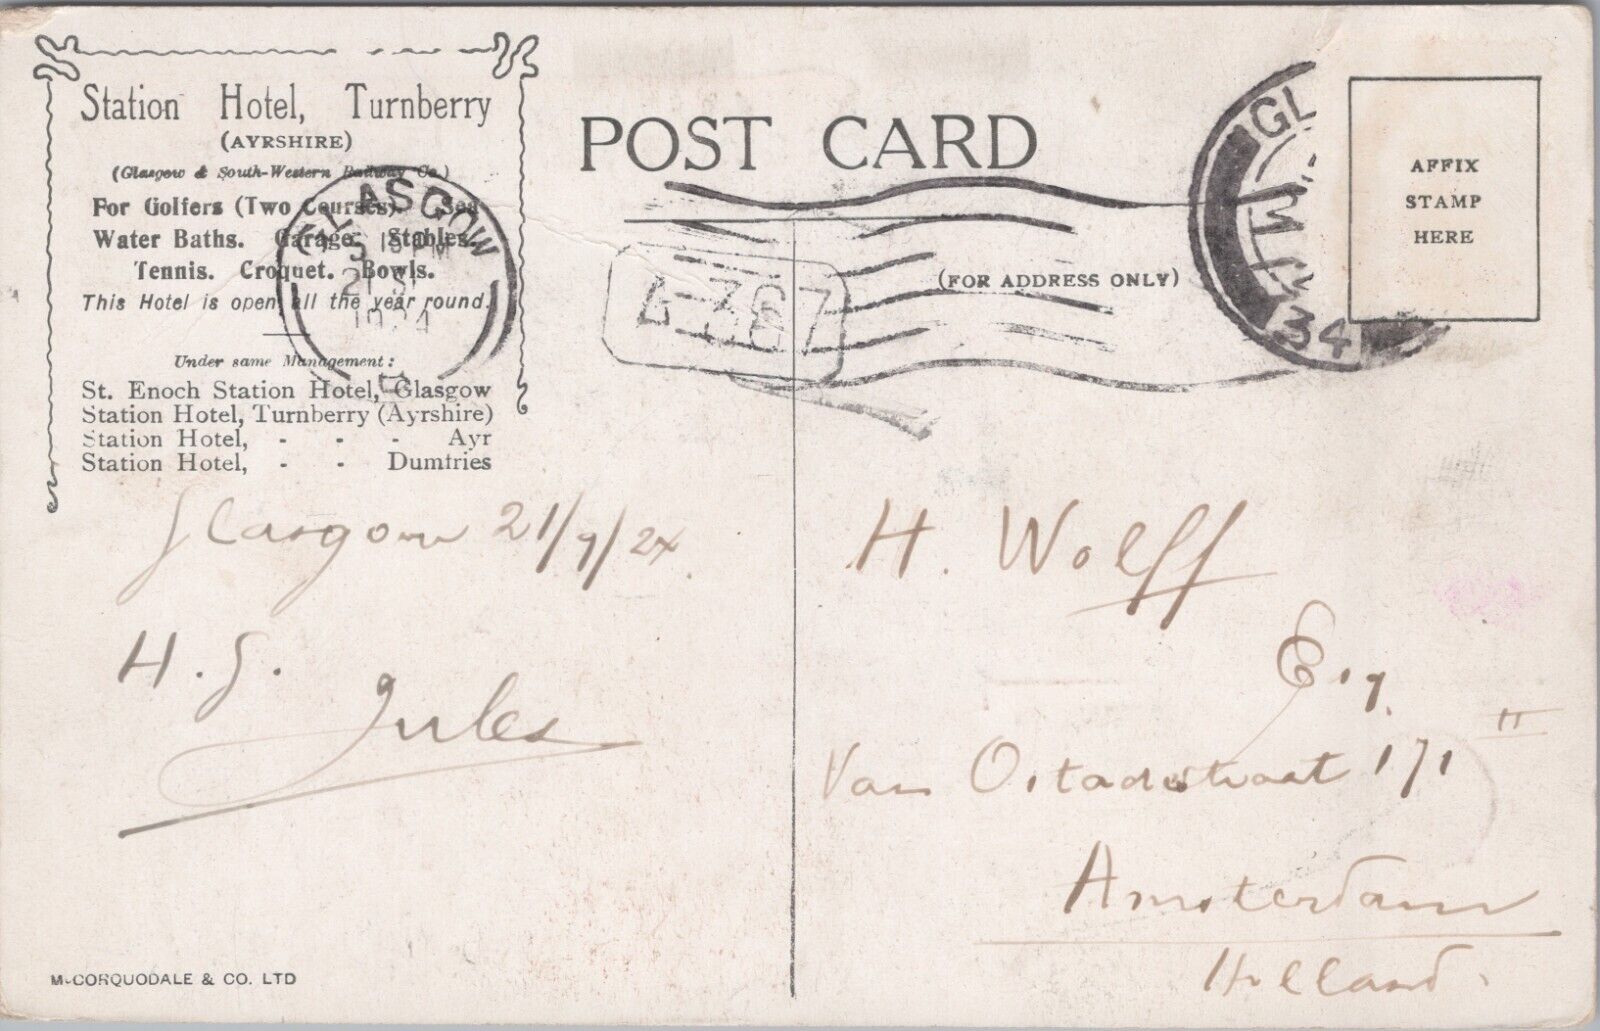 Station Hotel, Turnberry
(AYRSHIRE)
(Glasgow & South-Western Railway Co.)
For Golfers (Two Courses). Sea
Water Baths. Garage. Stables.
Tennis. Croquet. Bowls.
This Hotel is open all the year round.
Under same Management:
St. Enoch Station Hotel, Glasgow
Station Hotel, Turnberry (Ayrshire)
Station Hotel, - - - Ayr
Station Hotel, - - Dumfries
GLASGOW
1924
POST CARD
(FOR ADDRESS ONLY)
GL
34
AFFIX
STAMP
HERE
Glasgow 21/9/24.
H. J.
Jules
H. Wolff
Esq.
Van Ostadestraat 171 II
Amsterdam
Holland.
McCORQUODALE & CO. LTD